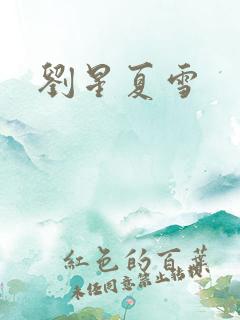 劉星夏雪
紅色的百葉
未任同意禁止转授